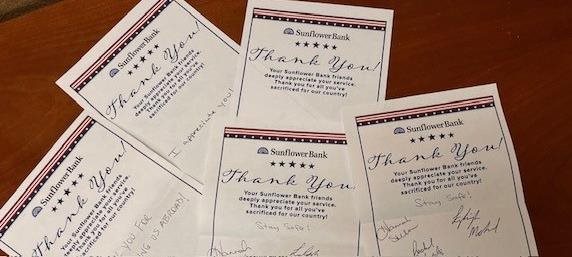 SunflowerBank
Thank You!
Your Sunflower Bank friends
deeply appreciate your service.
Thank you for all you've
sacrificed for our country!
I appreciate you!
SunflowerBank
Thank You!
Your Sunflower Bank friends
deeply appreciate your service.
Thank you for all you've
sacrificed for our country!
SunflowerBank
Thank You!
Your Sunflower Bank friends
deeply appreciate your service.
Thank you for all you've
sacrificed for our country!
YOU FOR
US ABROAD!
SunflowerBank
Thank You!
Your Sunflower Bank friends
deeply appreciate your service.
Thank you for all you've
sacrificed for our country!
Stay Safe!
Hannah
SunflowerBank
Thank You!
Your Sunflower Bank friends
deeply appreciate your service.
Thank you for all you've
sacrificed for our country!
Stay Safe!
Hannah